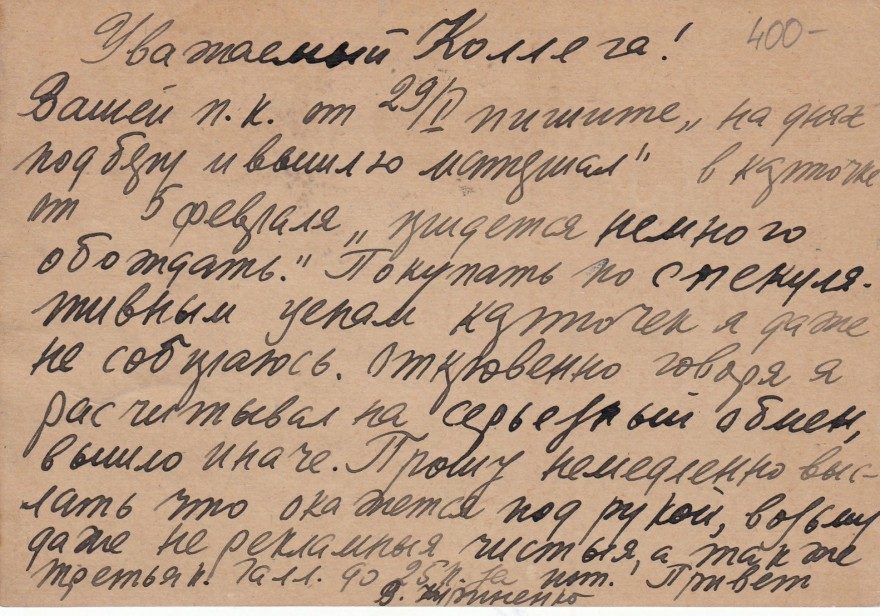 Уважаемый Коллега! 400-
Вашей п.к. от 29/I пишите „на днях
подберу и вышлю материал" в карточке
от 5 февраля „придется немного
обождать." Покупать по спекуля-
тивным ценам карточек я даже
не собираюсь. Откровенно говоря я
расчитывал на серьезный обмен,
вышло иначе. Прошу немедленно выс-
лать что окажется под рукой, возьму
даже не рекламныя чистыя, а также
третьяк. галл. до 25 к. за шт. Привет
В.